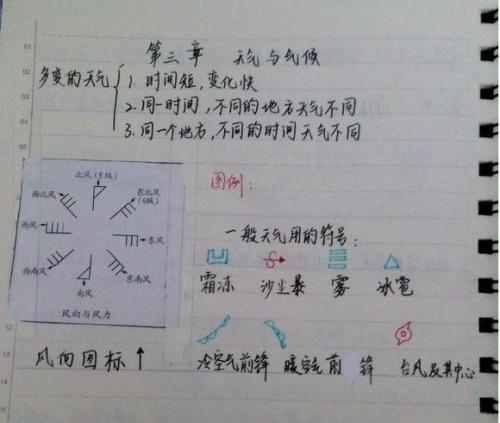 第三章 天气与气候
多变的天气
1. 时间短,变化快
2. 同一时间,不同的地方天气不同
3. 同一个地方,不同的时间天气不同
北风(8级)
西北风
东北风
(6级)
西风
东风
西南风
东南风
南风
风向与风力
风向图标
图例:
一般天气用的符号:
霜冻 沙尘暴 雾 冰雹
冷空气前锋 暖空气前锋 台风及其中心